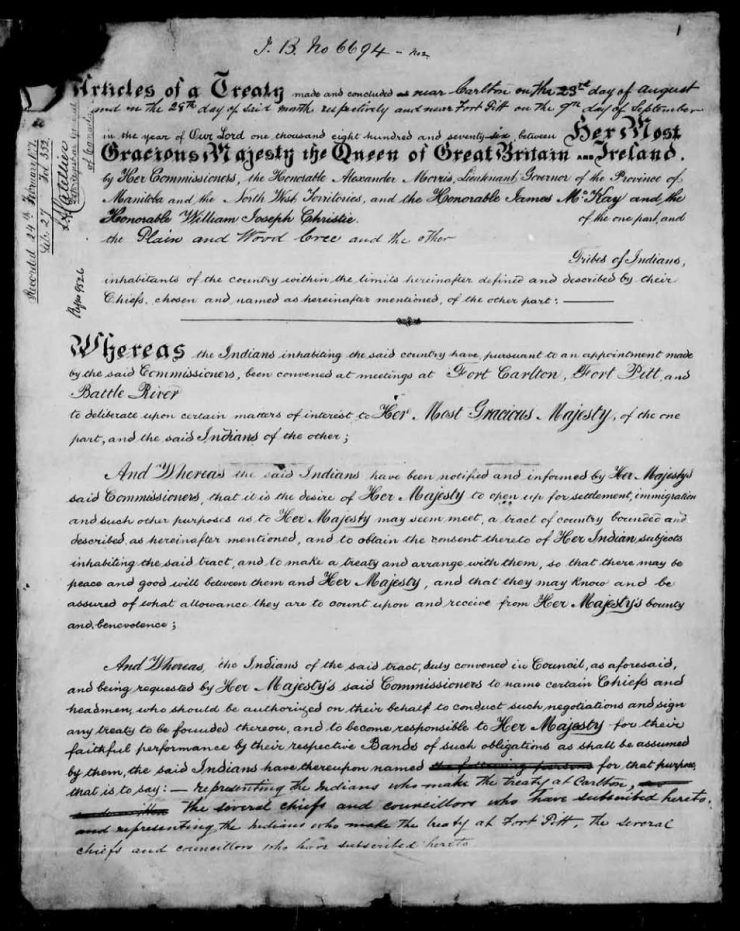 I. B. No 6694 -
1
Articles of a Treaty made and concluded near Carlton on the 23rd day of August
and on the 28th day of said month respectively and near Fort Pitt on the 9th day of September
in the year of Our Lord one thousand eight hundred and seventy-six, between Her Most
Gracious Majesty the Queen of Great Britain and Ireland.
by Her Commissioners, the Honorable Alexander Morris, Lieutenant Governor of the Province of
Manitoba and the North West Territories, and the Honorable James McKay and the
Honorable William Joseph Christie. of the one part, and
the Plain and Wood Cree and the other
Tribes of Indians,
inhabitants of the country within the limits hereinafter defined and described by their
Chiefs, chosen and named as hereinafter mentioned, of the other part: ———
Whereas the Indians inhabiting the said country have, pursuant to an appointment made
by the said Commissioners, been convened at meetings at Fort Carlton, Fort Pitt, and
Battle River
to deliberate upon certain matters of interest to Her Most Gracious Majesty, of the one
part, and the said Indians of the other;
And Whereas the said Indians have been notified and informed by Her Majesty's
said Commissioners, that it is the desire of Her Majesty to open up for settlement, immigration
and such other purposes as to Her Majesty may seem meet, a tract of country bounded and
described as hereinafter mentioned, and to obtain the consent thereto of Her Indian subjects
inhabiting the said tract, and to make a treaty and arrange with them, so that there may be
peace and good will between them and Her Majesty, and that they may know and be
assured of what allowance they are to count upon and receive from Her Majesty's bounty
and benevolence;
And Whereas, the Indians of the said tract, duly convened in Council, as aforesaid,
and being requested by Her Majesty's said Commissioners to name certain Chiefs and
headmen, who should be authorized on their behalf to conduct such negotiations and sign
any treaty to be founded thereon, and to become responsible to Her Majesty for their
faithful performance by their respective Bands of such obligations as shall be assumed
by them, the said Indians have thereupon named the following persons for that purpose,
that is to say: — representing the Indians who make the treaty at Carlton,
the several chiefs and councillors who have subscribed hereto,
and representing the Indians who make the treaty at Fort Pitt, the several
chiefs and councillors who have subscribed hereto
Recorded 24th February 1877
Lib. 27 Fol 352
of Canada
9526